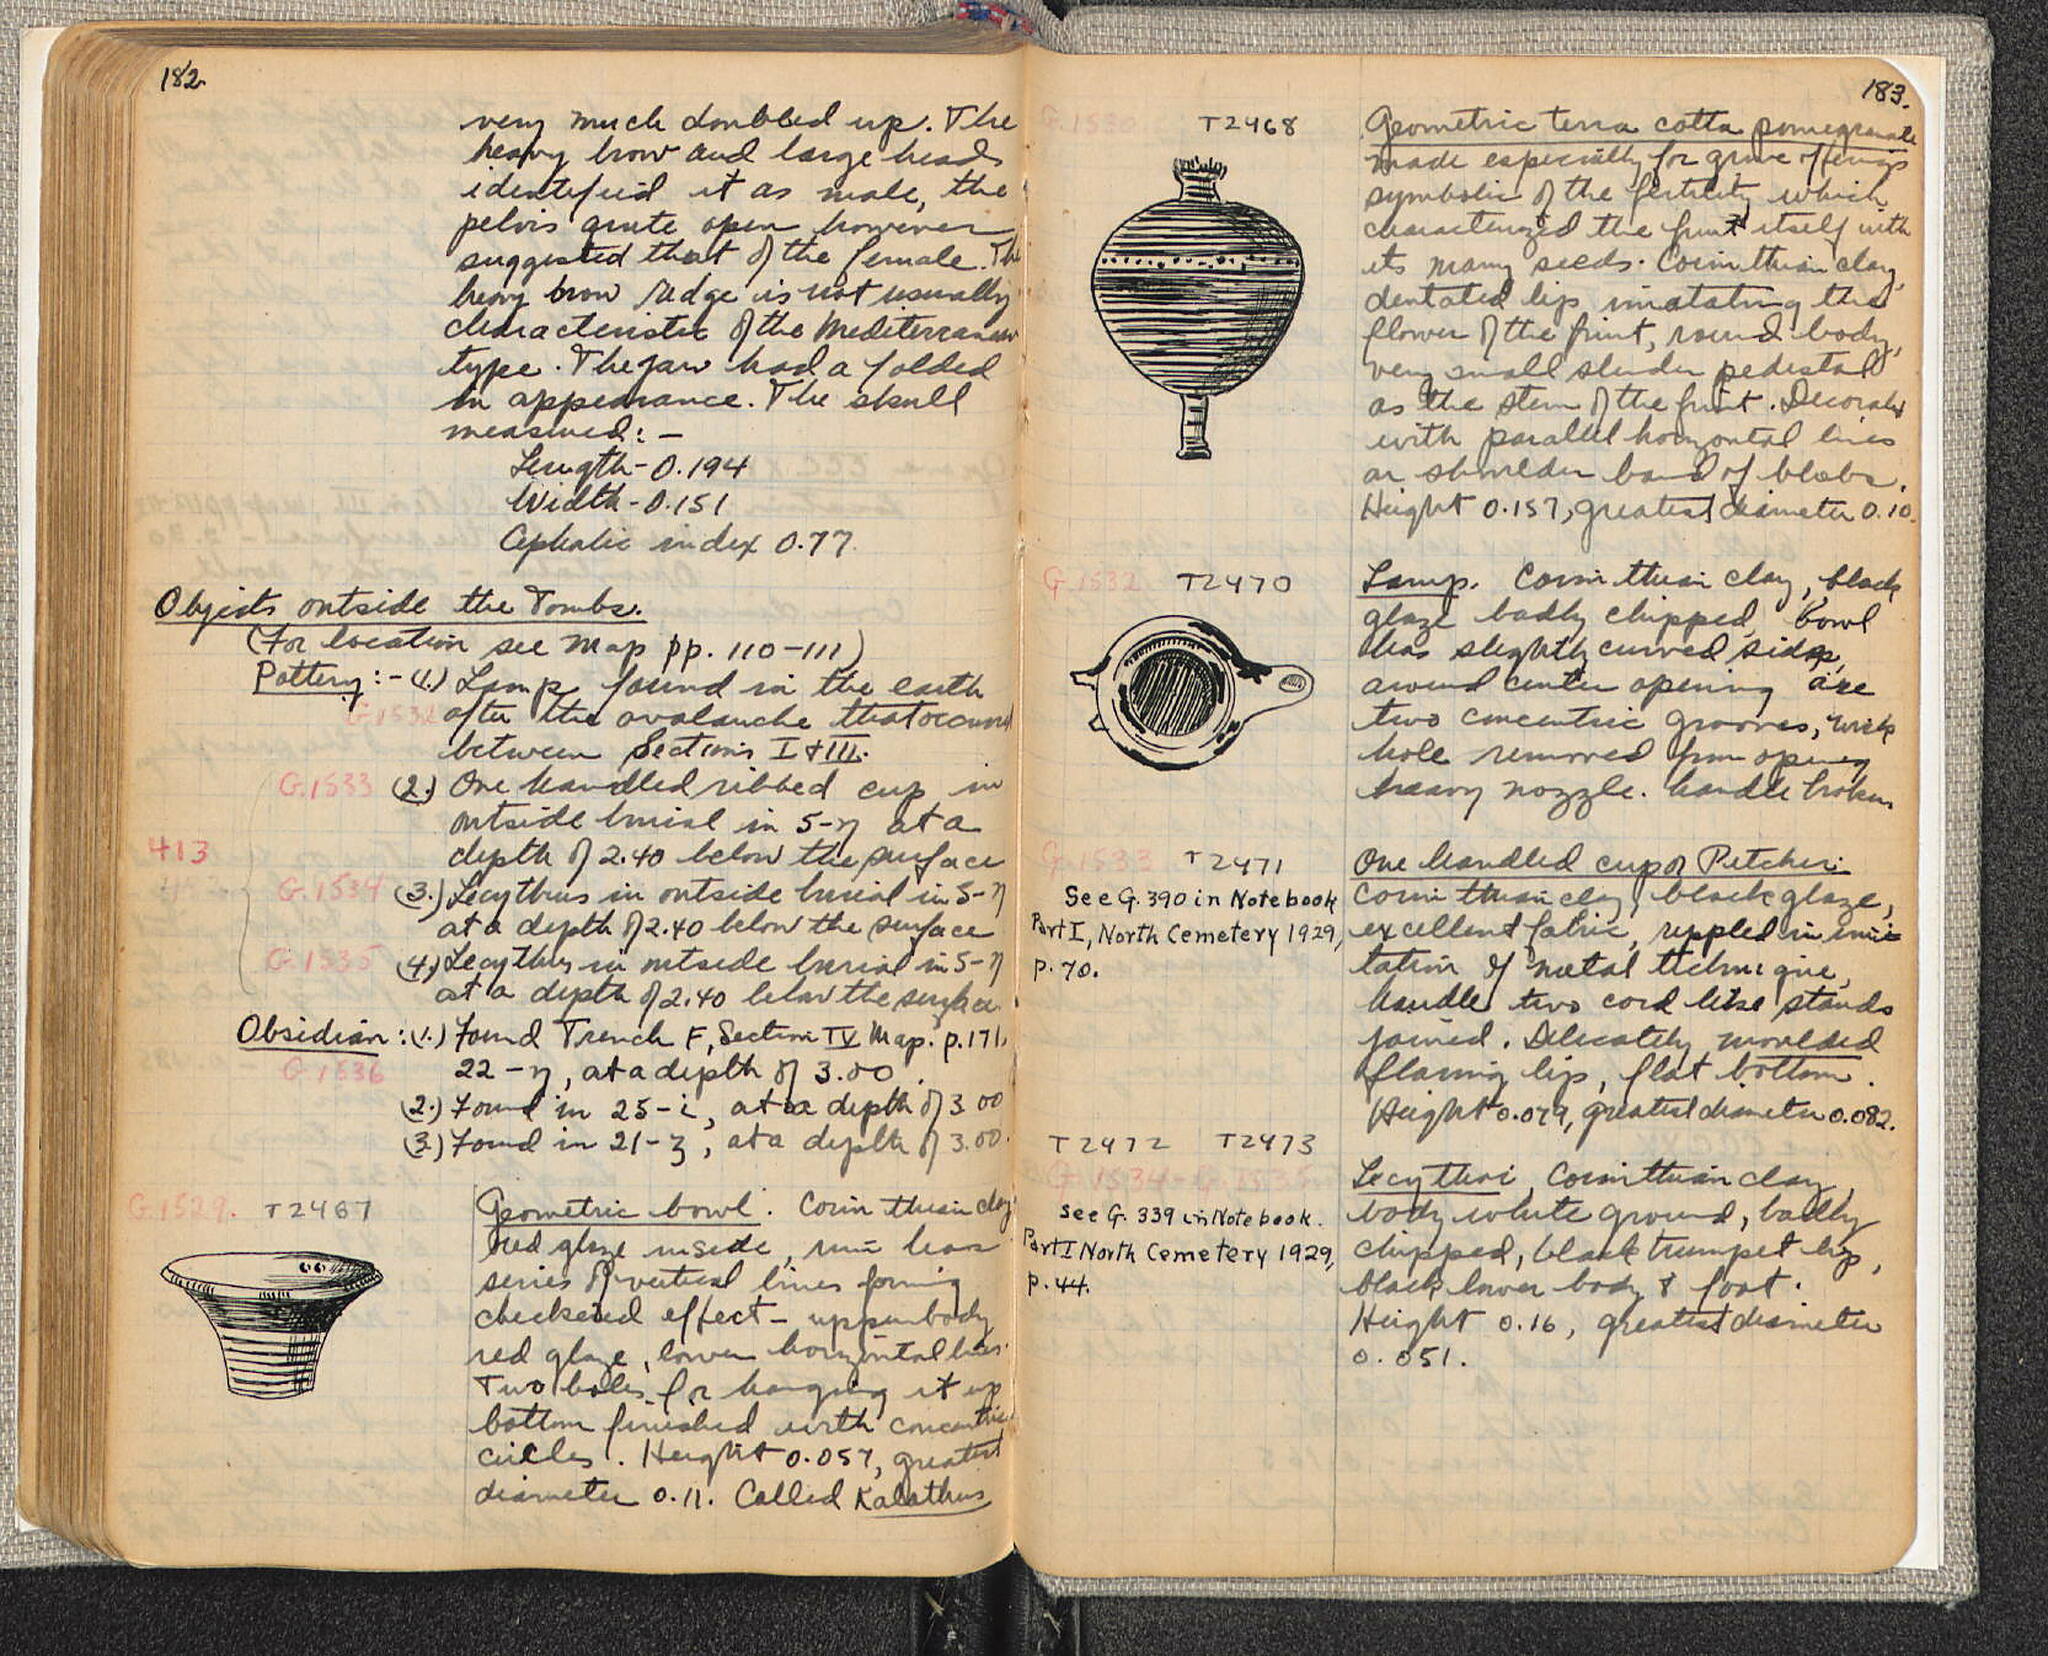 182.
very much doubled up. The
heavy brow and large heads
identified it as male, the
pelvis quite open however
suggested that of the female. The
heavy brow ridge is not usually
characteristic of the Mediterranean
type. The jaw had a folded
in appearance. The skull
measured: —
Length - 0.194
Width - 0.151
Cephalic index 0.77
Objects outside the Tombs.
(For location see Map pp. 110-111)
Pottery: - (1.) Lamp found in the earth
G.1532 after the avalanche that occurred
between Sections I & III.
G.1533 (2.) One handled ribbed cup in
outside burial in 5-η at a
413 depth of 2.40 below the surface
G.1534 (3.) Lecythus in outside burial in 5-η
at a depth of 2.40 below the surface
G.1535 (4.) Lecythus in outside burial in 5-η
at a depth of 2.40 below the surface
Obsidian: (1.) Found Trench F, Section IV Map. p. 171,
G.1536 22-η, at a depth of 3.00.
(2.) Found in 25-i, at a depth of 3.00
(3.) Found in 21-z, at a depth of 3.00.
G.1529. T2467
Geometric bowl. Corinthian clay
red glaze inside, rim has
series of vertical lines forming
checkered effect - upper body
red glaze, lower horizontal lines.
Two holes for hanging it up
bottom finished with concentric
circles. Height 0.057, greatest
diameter 0.11. Called Kalathus
183.
G.1530 T2468
Geometric terra cotta pomegranate
made especially for grave offerings
symbolic of the fertility which
characterized the fruit itself with
its many seeds. Corinthian clay,
dentated lip imitating the
flower of the fruit, round body,
very small slender pedestal
as the stem of the fruit. Decorated
with parallel horizontal lines
on shoulder band of blobs.
Height 0.157, greatest diameter 0.10.
G.1532 T2470
Lamp. Corinthian clay, black
glaze badly chipped, Bowl
has slightly curved sides,
around center opening are
two concentric grooves, wick
hole removed from opening
heavy nozzle. handle broken
G.1533 T2471
See G. 390 in Notebook
Part I, North Cemetery 1929,
p. 70.
One handled cup or Pitcher:
Corinthian clay, black glaze,
excellent fabric, rippled in imi-
tation of metal technique,
handle two cord like stands
joined. Delicately moulded
flaring lip, flat bottom.
Height 0.079, greatest diameter 0.082.
T2472 T2473
G.1534-G.1535
See G. 339 in Notebook.
Part I North Cemetery 1929,
p. 44.
Lecythoi, Corinthian clay,
body white ground, badly
chipped, black trumpet lip,
black lower body & foot.
Height 0.16, greatest diameter
0.051.